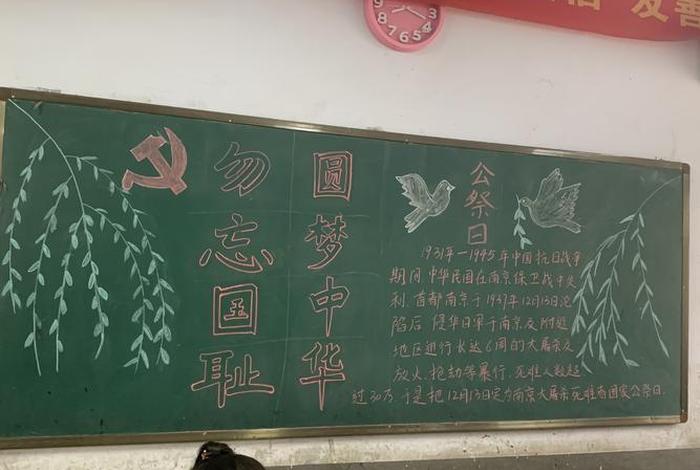 友善
勿忘国耻
圆梦中华
公祭日
1931年—1945年中国抗日战争
期间中华民国在南京保卫战中失
利、首都南京于1937年12月13日沦
陷后侵华日军于南京及附近
地区进行长达6周的大屠杀及
放火、抢劫等暴行、死难人数超
过30万于是把12月13日定为南京大屠杀死难者国家公祭日.